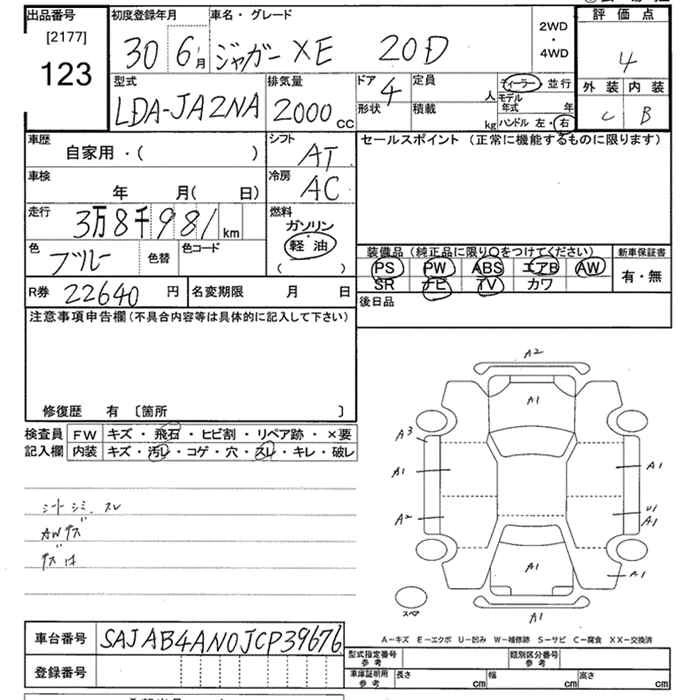 出品番号 初度登録年月 車名・グレード 2WD・4WD 評価点
[2177]
123
30 6月 ジャガー XE 20D 4
型式 排気量 ドア 定員 人 ディーラー 並行 外装 内装
LDA-JA2NA 2000cc 4 形状 積載 kg モデル年式 年 C B
ハンドル 左・右
車歴 シフト セールスポイント (正常に機能するものに限ります)
自家用・( ) AT
車検 冷房
年 月( 日) AC
走行 燃料
3万8千981km ガソリン
軽油
( )
色 色替 色コード 装備品 (純正品に限り○をつけてください) 新車保証書
ブルー PS PW ABS エアB AW 有・無
SR ナビ TV カワ
R券 22640円 名変期限 月 日 後日品
注意事項申告欄(不具合内容等は具体的に記入して下さい)
修復歴 有 〔箇所 〕
検査員 FW キズ・飛石・ヒビ割・リペア跡・×要
記入欄 内装 キズ・汚レ・コゲ・穴・スレ・キレ・破レ
シートシミ、スレ
AWキズ
キズ有
A2
A1
A3
A1 A1
A2 U1
A1
A1 A1
スペア
A1
A-キズ E-エクボ U-凹み W-補修跡 S-サビ C-腐食 XX-交換済
車台番号 SAJAB4AN0JCP39676
登録番号
型式指定番号参考 類別区分番号参考
車庫証明用参考 長さ cm 幅 cm 高さ cm